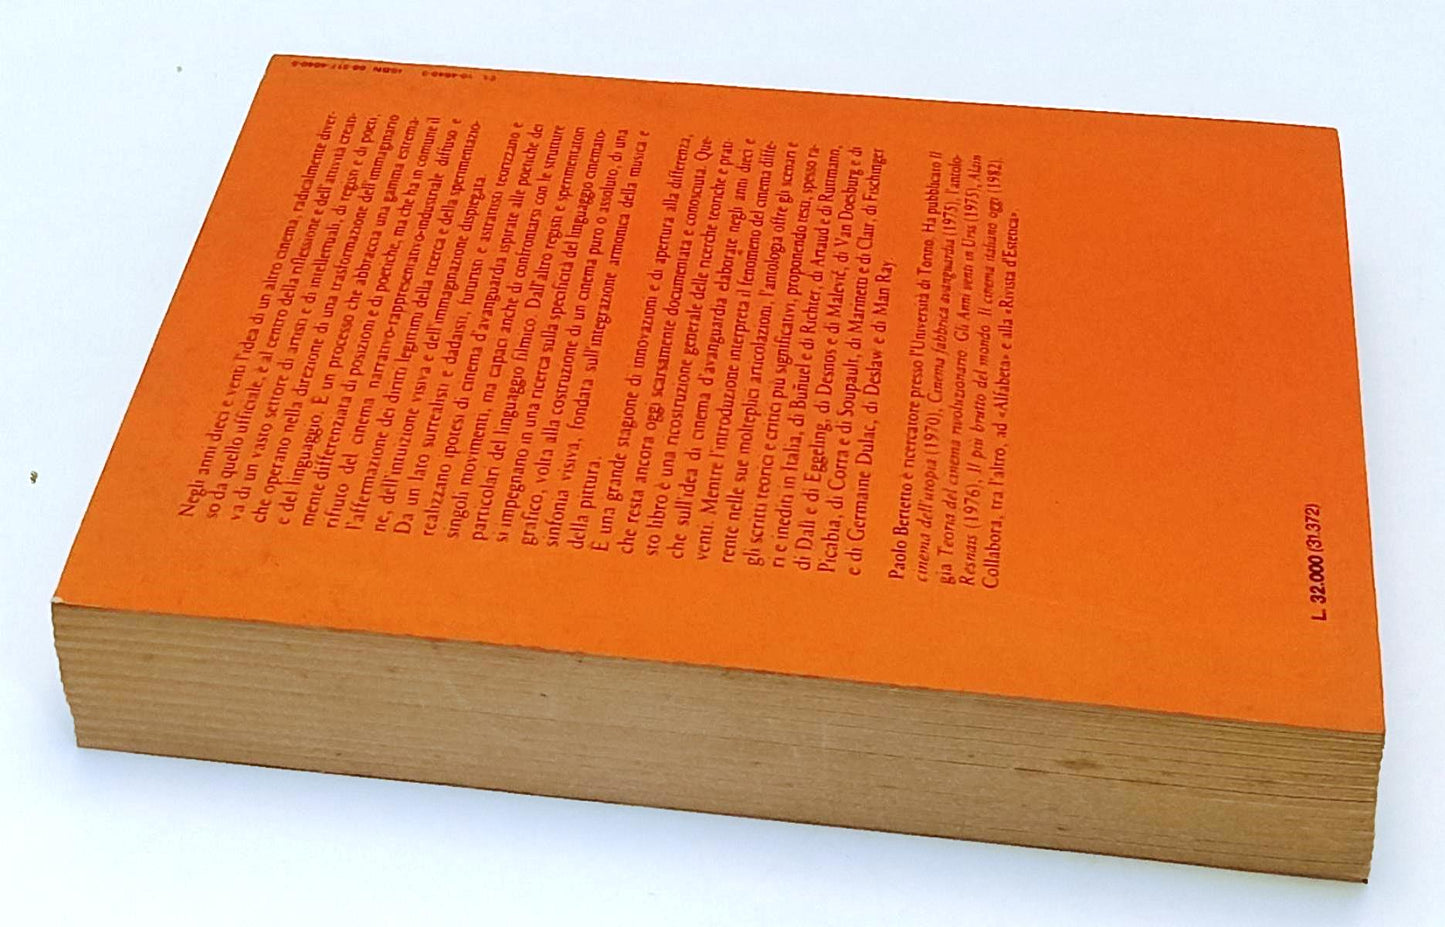 Negli anni dieci e venti l'idea di un altro cinema, radicalmente diver-
so da quello ufficiale, è al centro della riflessione e dell'attività crean-
va di un vasto settore di artisti e di intellettuali, di registi e di poeti,
che operano nella direzione di una trasformazione dell'immaginario
e del linguaggio. È un processo che abbraccia una gamma estrema-
mente differenziata di posizioni e di poetiche, ma che ha in comune il
rifiuto del cinema narrativo-rappresentativo-industriale diffuso e
l'affermazione dei diritti legittimi della ricerca e della sperimentazio-
ne, dell'intuizione visiva e dell'immaginazione dispiegata.
Da un lato surrealisti e dadaisti, futuristi e astrattisti teorizzano e
realizzano ipotesi di cinema d'avanguardia ispirate alle poetiche dei
singoli movimenti, ma capaci anche di confrontarsi con le strutture
particolari del linguaggio filmico. Dall'altro registi e sperimentatori
si impegnano in una ricerca sulla specificità del linguaggio cinemato-
grafico, volta alla costruzione di un cinema puro o assoluto, di una
sinfonia visiva, fondata sull'integrazione armonica della musica e
della pittura.
È una grande stagione di innovazioni e di apertura alla differenza,
che resta ancora oggi scarsamente documentata e conosciuta. Que-
sto libro è una ricostruzione generale delle ricerche teoriche e prati-
che sull'idea di cinema d'avanguardia elaborate negli anni dieci e
venti. Mentre l'introduzione interpreta il fenomeno del cinema diffe-
rente nelle sue molteplici articolazioni, l'antologia offre gli scenari e
gli scritti teorici e critici più significativi, proponendo testi, spesso ra-
ri e inediti in Italia, di Buñuel e di Richter, di Artaud e di Ruttmann,
di Dalì e di Eggeling, di Desnos e di Malevič, di Van Doesburg e di
Picabia, di Corra e di Soupault, di Marinetti e di Clair, di Fischinger
e di Germaine Dulac, di Deslaw e di Man Ray.
Paolo Bertetto è ricercatore presso l'Università di Torino. Ha pubblicato Il
cinema dell'utopia (1970), Cinema fabbrica avanguardia (1975), l'antolo-
gia Teoria del cinema rivoluzionario. Gli Anni venti in Urss (1975), Alain
Resnais (1976), Il più brutto del mondo. Il cinema italiano oggi (1982).
Collabora, tra l'altro, ad «Alfabeta» e alla «Rivista d'Estetica».
L. 32.000 (31.372)
ISBN 88-317-4840-3
CL 10-4840-3